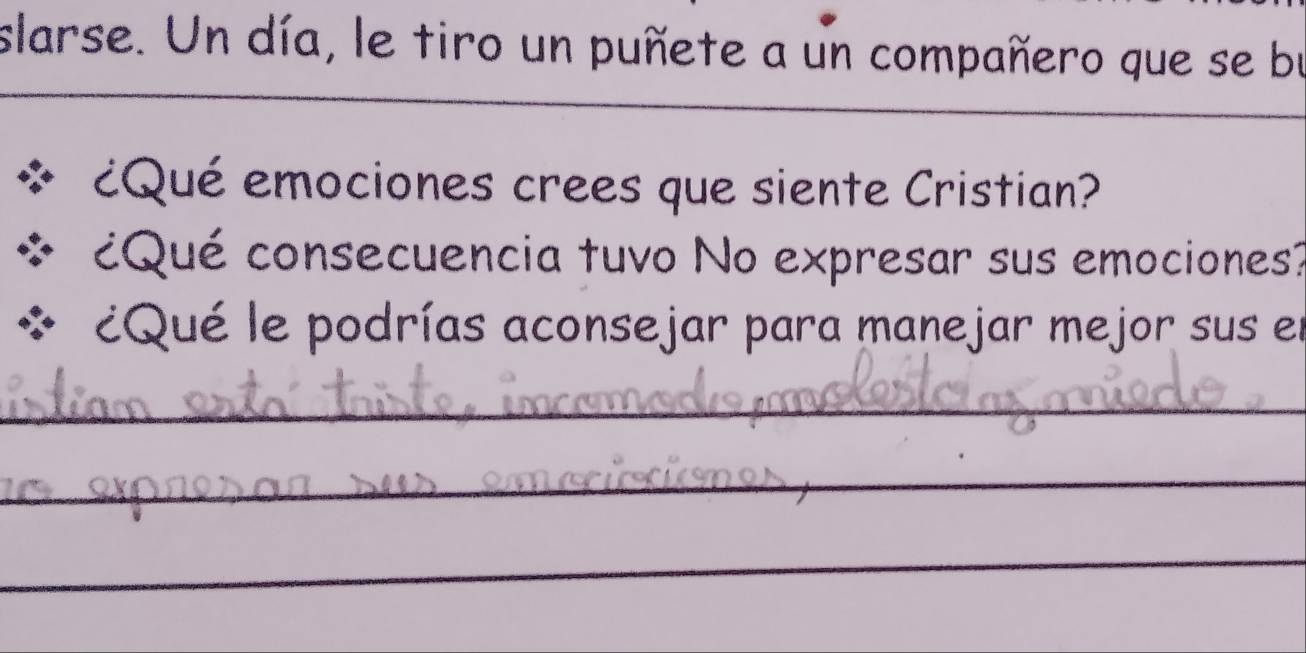 slarse. Un día, le tiro un puñete a un compañero que se bu
❖ ¿Qué emociones crees que siente Cristian?
❖ ¿Qué consecuencia tuvo No expresar sus emociones?
❖ ¿Qué le podrías aconsejar para manejar mejor sus e
istian está triste, incomodo, molesto y miedo.
no expresar sus emociociones,